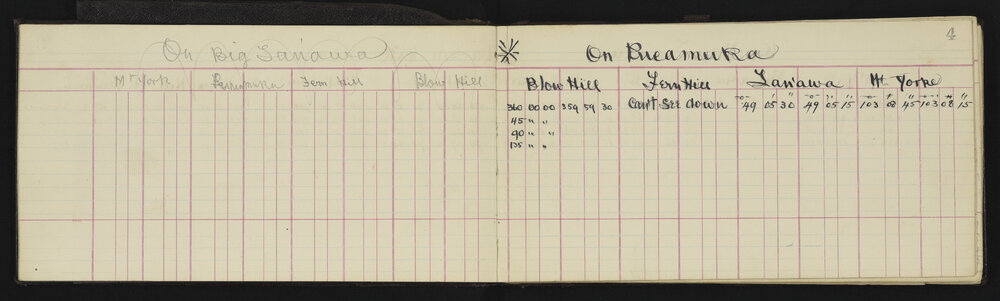 On Big Tarrawa
Mt York Buramuka Fern Hill Blow Hill
4
On Bucamuka
Blow Hill Fern Hill Tarrawa Mt Yorke
360 00 00 359 59 30 Can't See down 49 05 30 49 05 15 103 08 45 103 08 15
45 " "
90 " "
135 " "